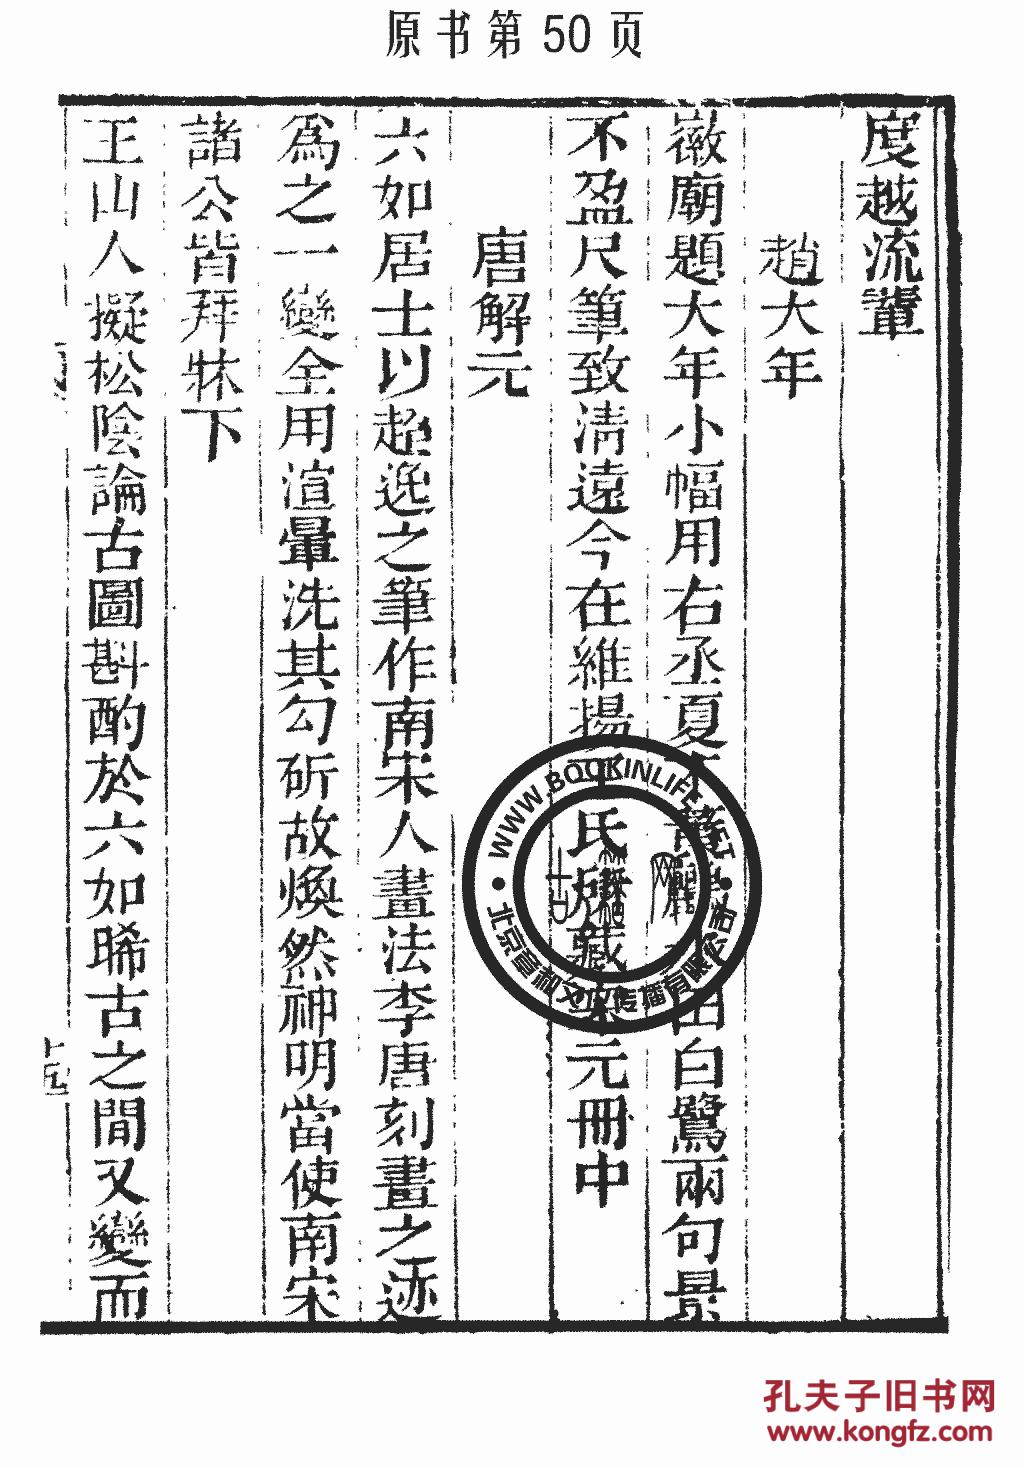 原书第50页
度越流輩
趙大年
徽廟題大年小幅用右丞夏
田白鷺兩句景
不盈尺筆致清遠今在維揚
氏
藏
元冊中
唐解元
六如居士以超逸之筆作南宋人畫法李唐刻畫之迹
為之一變全用渲暈洗其勾斫故煥然神明當使南宋
諸公皆拜牀下
王山人擬松陰論古圖斟酌於六如晞古之間又變而
十五
WWW.BOOKINLIFE.NET
孔夫子旧书网
www.kongfz.com